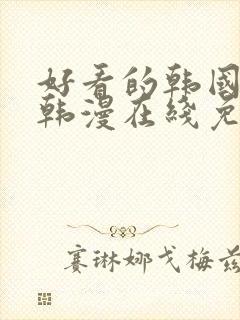 好看的韩國
韩漫在綫免
赛琳娜戈梅兹